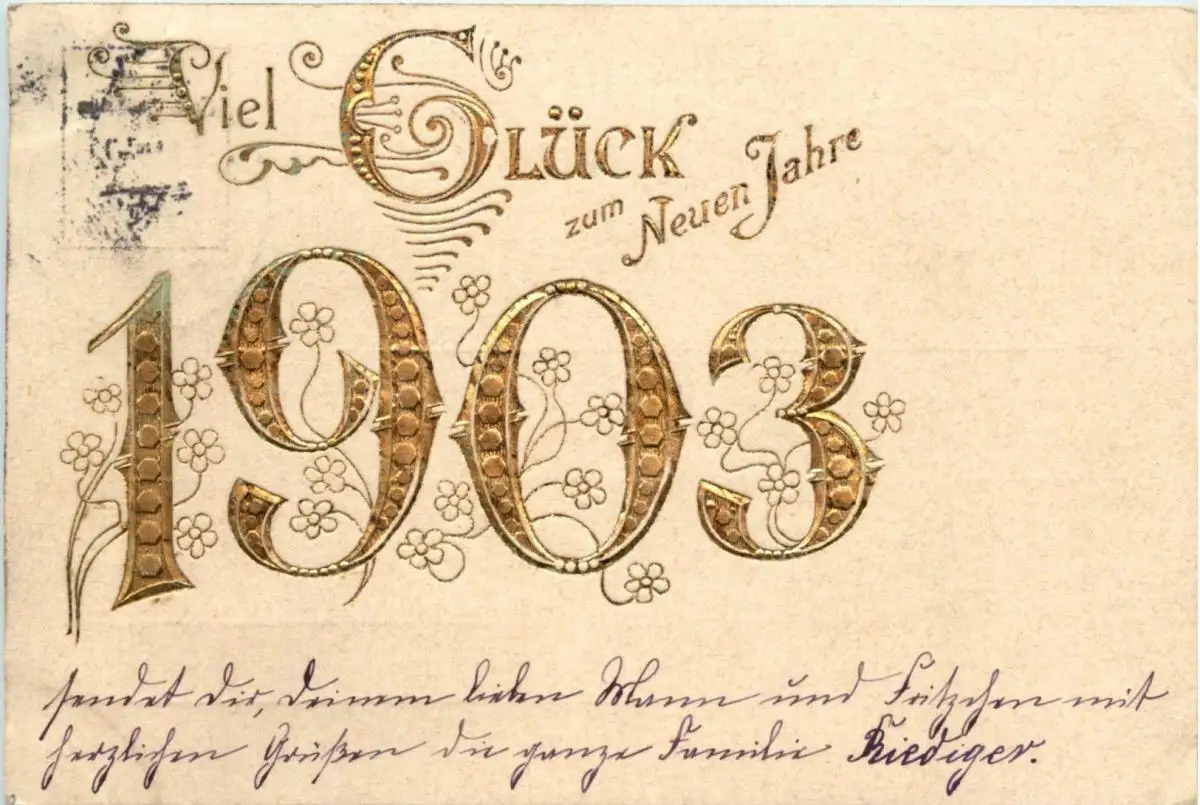 Viel Glück
zum Neuen Jahre
1903
sendet Dir, Deinem lieben Mann und Fritzchen mit
herzlichen Grüßen die ganze Familie Riediger.